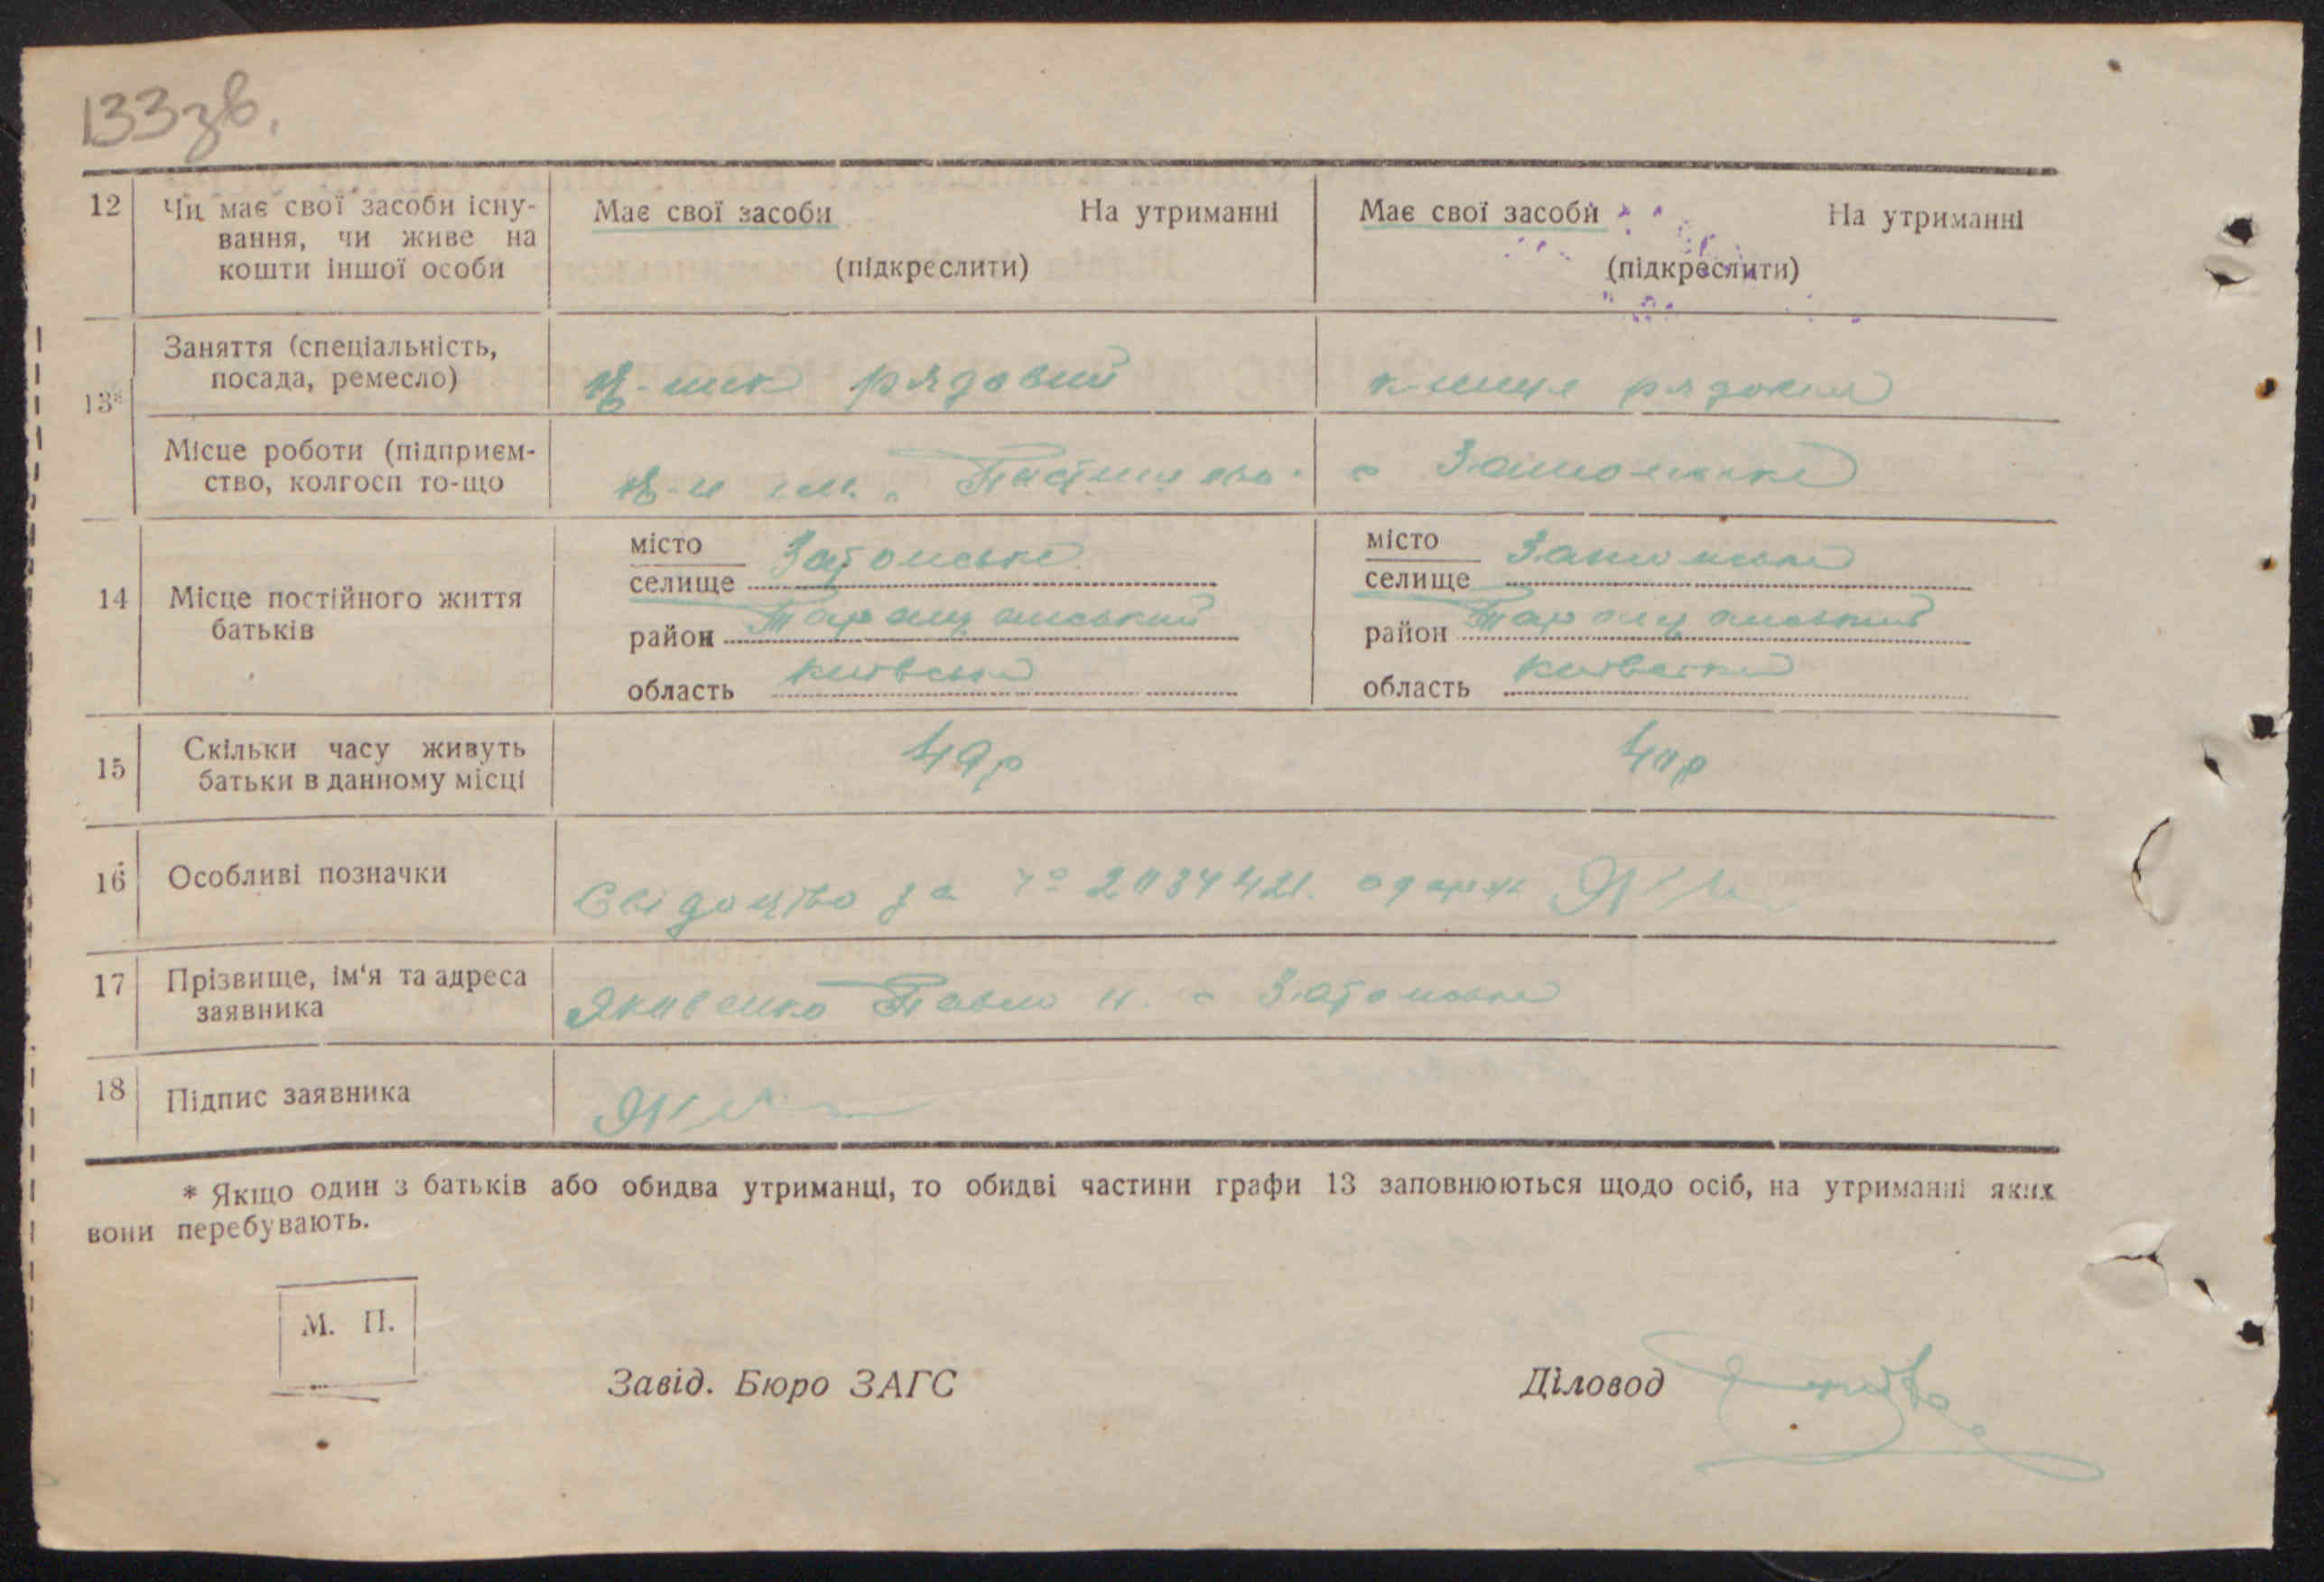 133 зв.
12 Чи має свої засоби існу- Має свої засоби На утриманні Має свої засоби На утриманні
вання, чи живе на
кошти іншої особи (підкреслити) (підкреслити)
Заняття (спеціальність,
посада, ремесло) к-ник рядовий к-ниця рядова
13*
Місце роботи (підприєм-
ство, колгосп то-що к-п ім. с Затонське
14 Місце постійного життя
батьків
місто Затонське місто Затонське
селище селище
район Таращанський район Таращанський
область Київська область Київська
15 Скільки часу живуть
батьки в данному місці 40р 40р
16 Особливі позначки Свідоцтво за № одерж
17 Прізвище, ім'я та адреса
заявника Яковенко Павло с Затонське
18 Підпис заявника
* Якщо один з батьків або обидва утриманці, то обидві частини графи 13 заповнюються щодо осіб, на утриманні яких
вони перебувають.
М. П.
Завід. Бюро ЗАГС Діловод